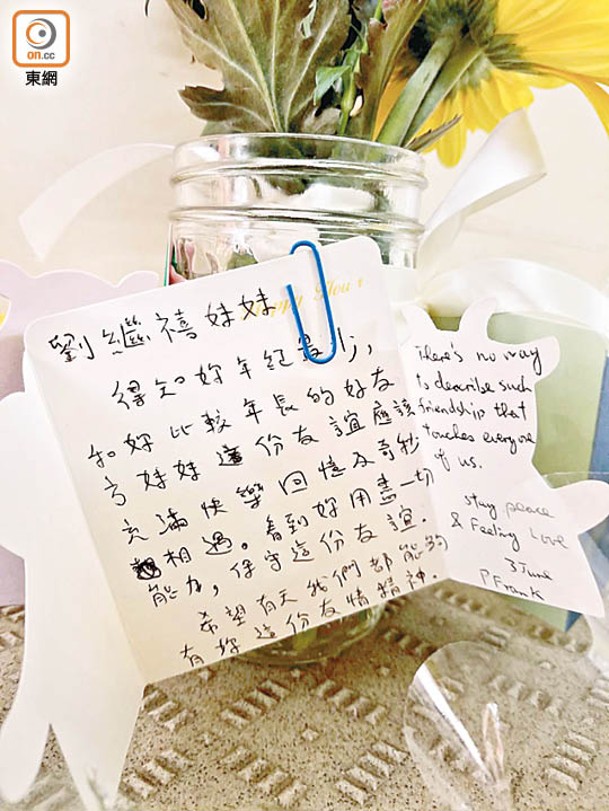 on.cc
東網
Happy Hour
劉繼禧妹妹
得知妳年紀最少,
和妳比較年長的好友
方妹妹這份友誼應該
充滿快樂回憶及奇妙
相遇。看到妳用盡一切
能力,保守這份友誼.
希望有天我們都能夠
有妳這份友情精神.
There's no way
to describe such
friendship that
touches everyone
of us.
stay peace
& Feeling Love
3 June
P Frank